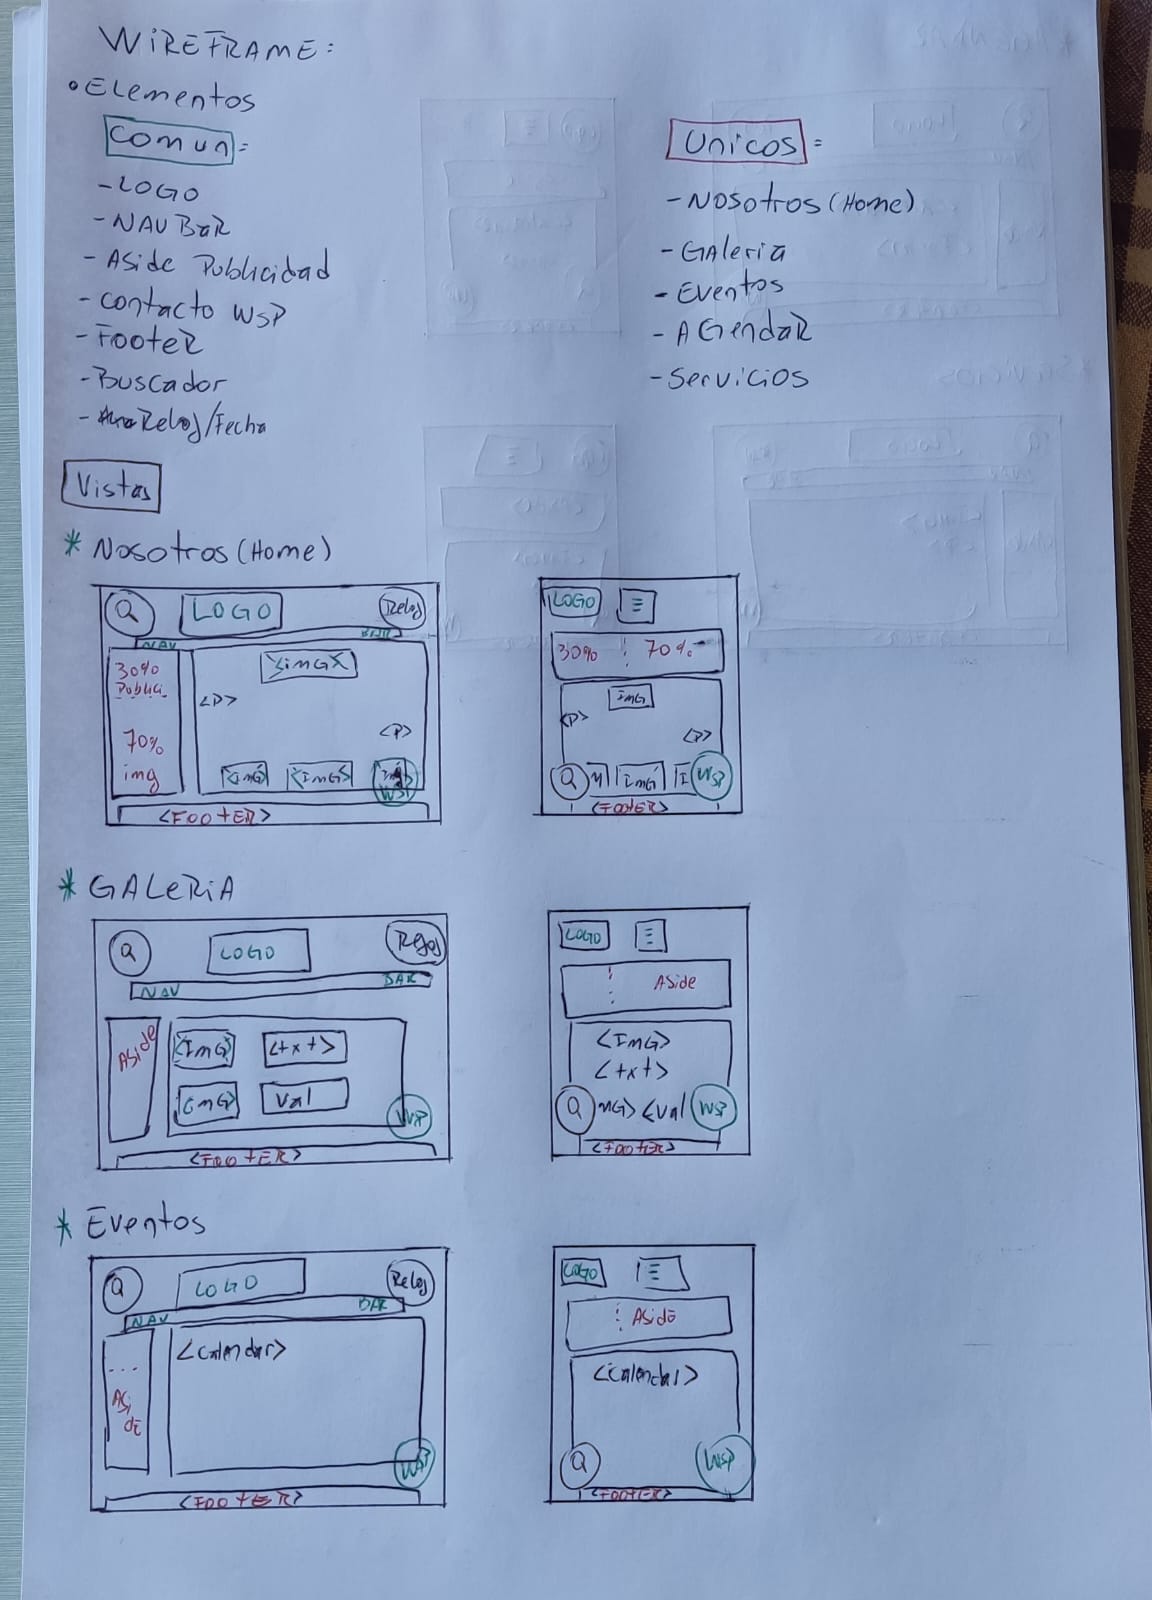 WIREFRAME:
• Elementos
Comun:
- LOGO
- NAV BaR
- Aside Publicidad
- Contacto WSP
- FooteR
- Buscador
- Reloj/Fecha
Unicos:
- Nosotros (Home)
- GAleria
- Eventos
- AGendaR
- Servicios
Vistas
* Nosotros (Home)
Q LOGO Reloj
NAV BAR
30%
Public.
70%
img
<imG>
<P>
<P>
<imG> <ImG>
WSP
<FOOtER>
LOGO ☰
30% ⋮ 70%
ImG
<P>
<P>
Q ImG I WSP
<FOOtER>
* GALeRiA
Q LOGO Reloj
NAV BAR
ASide
<ImG> <txt>
<imG> Val
WSP
<FOOtER>
LOGO ☰
⋮ ASide
<ImG>
<txt>
Q mG> <Val WSP
<FOOtER>
* Eventos
Q LOGO Reloj
NAV BAR
...
ASi
de
<Calendar>
WSP
<FOOtER>
LOGO ☰
⋮ ASide
<Calendar>
Q WSP
<FOOtER>